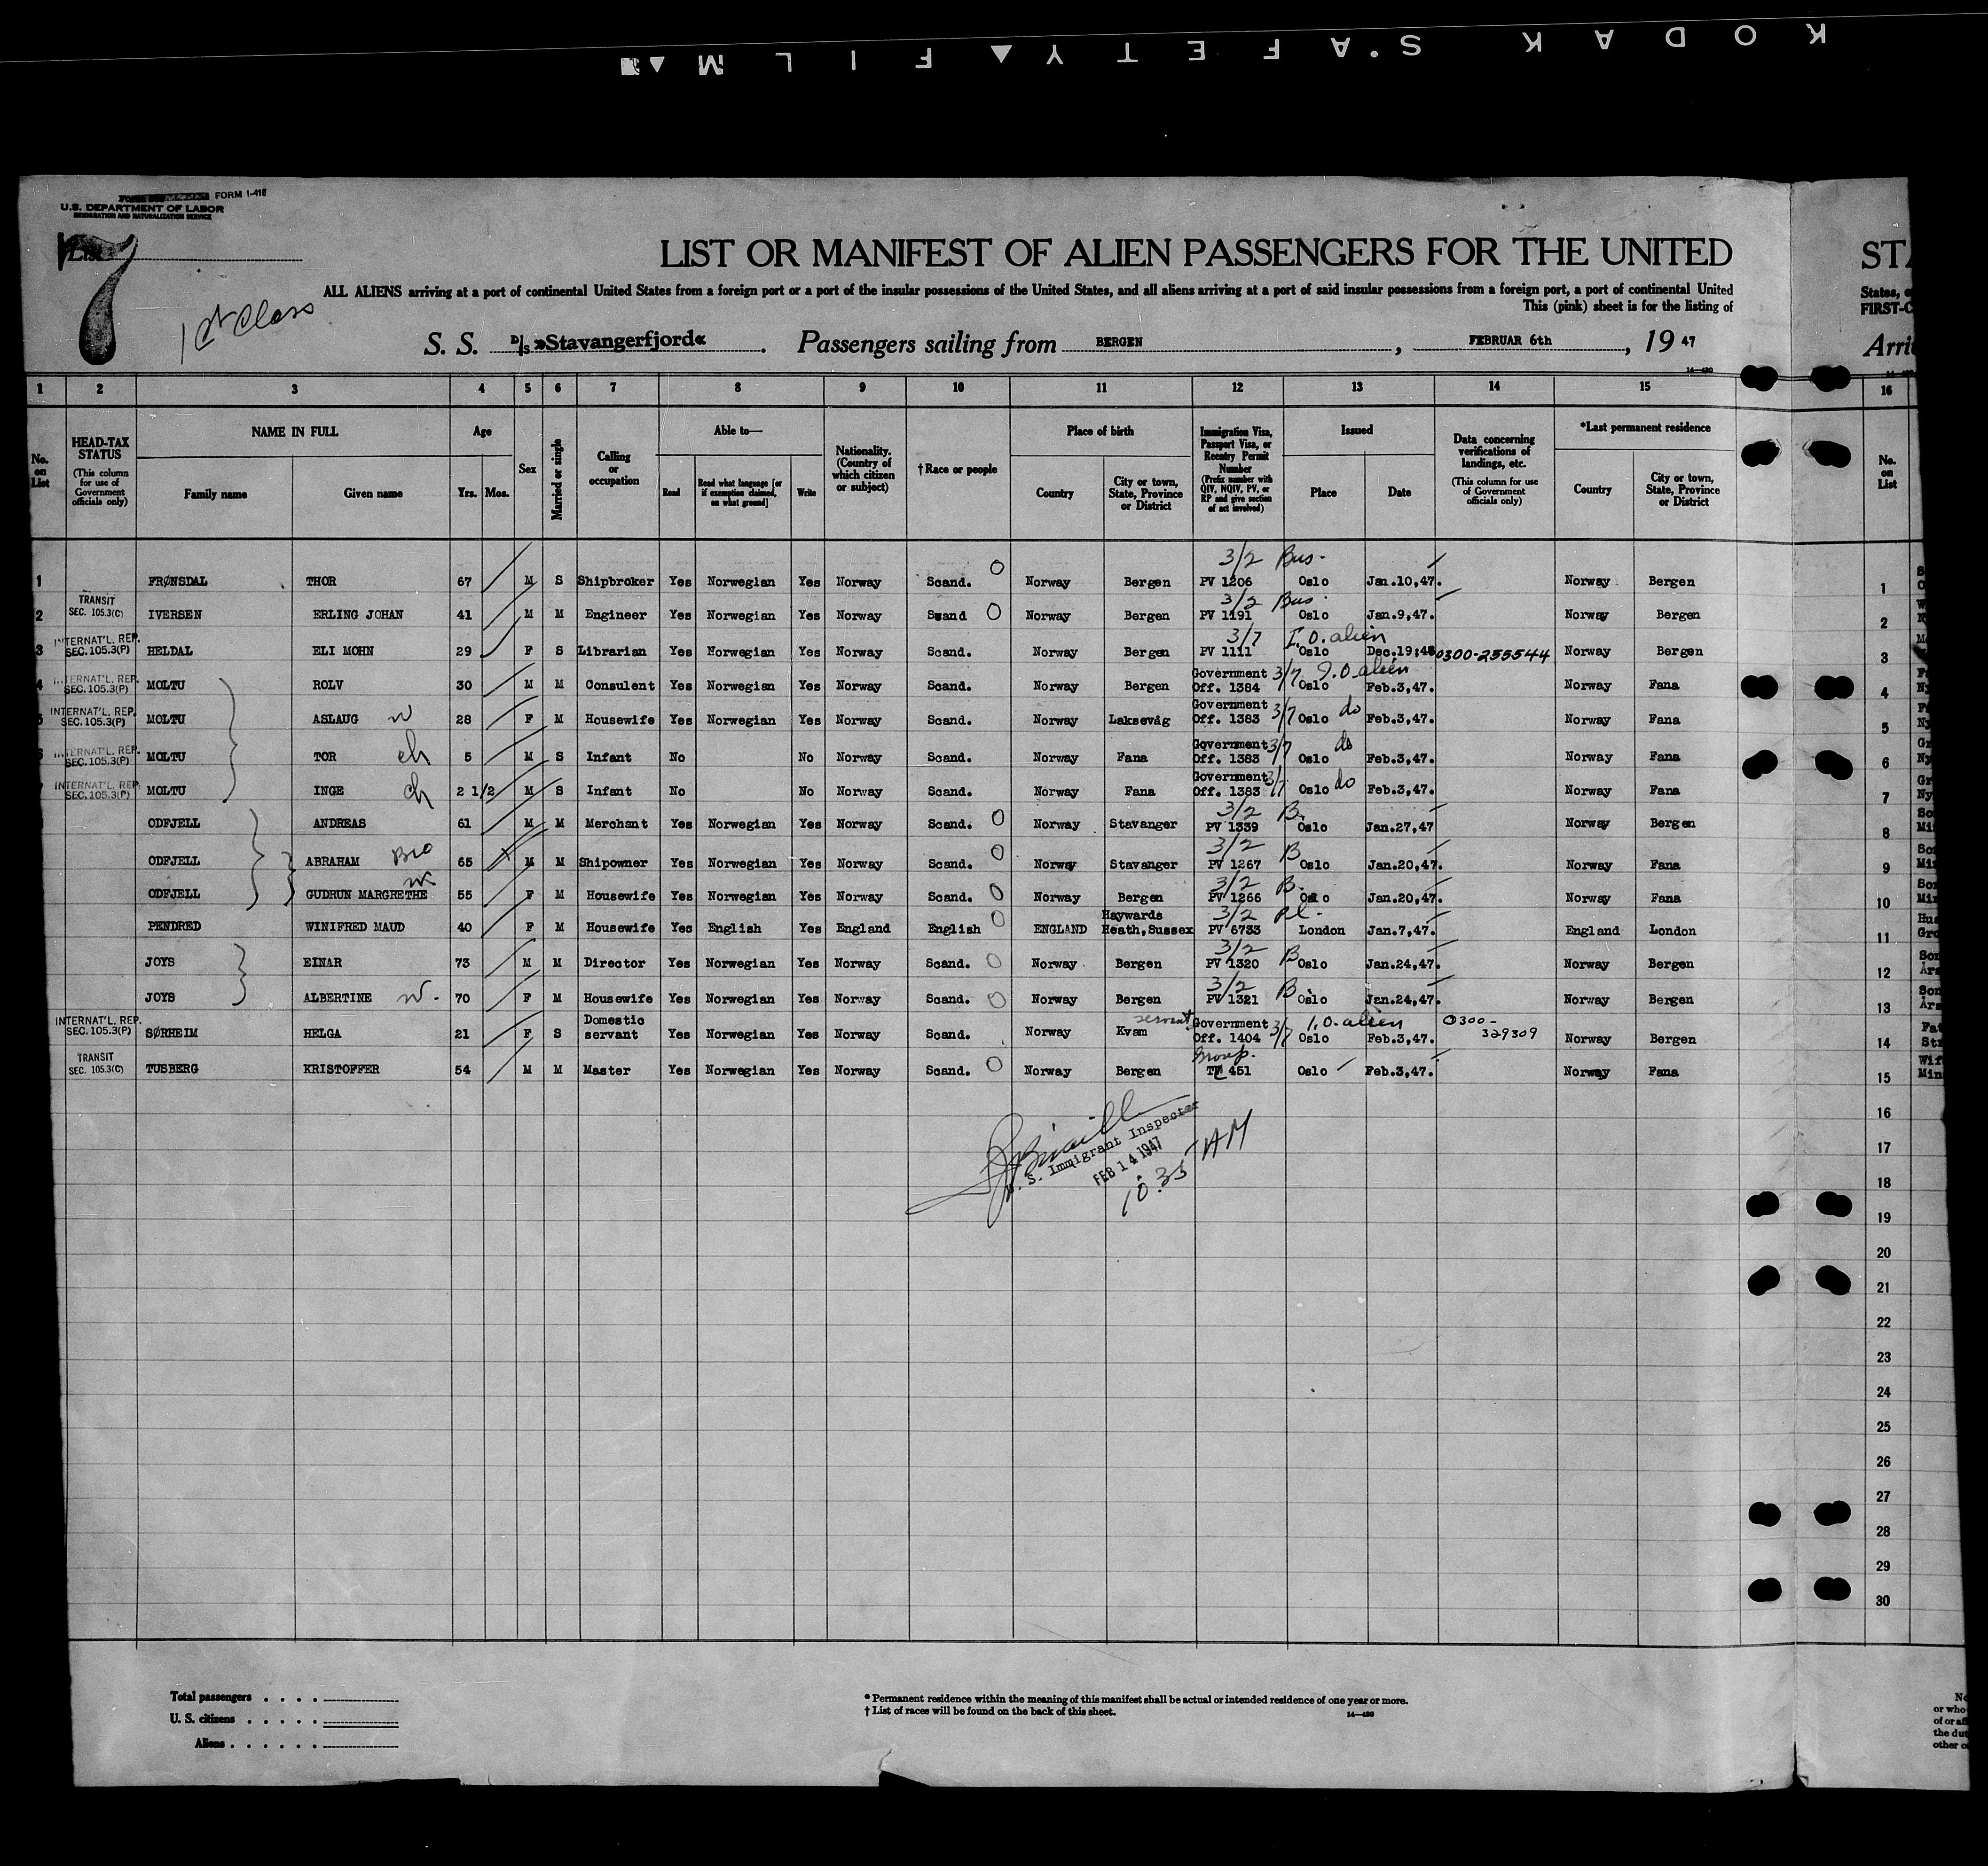 KODAK S'AFETY▲FILM
FORM I-416
U.S. DEPARTMENT OF LABOR
IMMIGRATION AND NATURALIZATION SERVICE
List
7
1st Class
LIST OR MANIFEST OF ALIEN PASSENGERS FOR THE UNITED
ST
ALL ALIENS arriving at a port of continental United States from a foreign port or a port of the insular possessions of the United States, and all aliens arriving at a port of said insular possessions from a foreign port, a port of continental United
States, o
This (pink) sheet is for the listing of
FIRST-C
S. S. D/S »Stavangerfjord« . Passengers sailing from BERGEN , FEBRUAR 6th , 19 47
Arri
1 2 3 4 5 6 7 8 9 10 11 12 13 14 15 16
No. on List
HEAD-TAX STATUS (This column for use of Government officials only)
NAME IN FULL Family name Given name
Age Yrs. Mos.
Sex
Married or single
Calling or occupation
Able to— Read Read what language [or if exemption claimed, on what ground] Write
Nationality. (Country of which citizen or subject)
† Race or people
Place of birth Country City or town, State, Province or District
Immigration Visa, Passport Visa, or Reentry Permit Number (Prefix number with QIV, NQIV, PV, or RP and give section of act involved)
Issued Place Date
Data concerning verifications of landings, etc. (This column for use of Government officials only)
*Last permanent residence Country City or town, State, Province or District
No. on List
3/2 Bus.
1 FRØNSDAL THOR 67 M S Shipbroker Yes Norwegian Yes Norway Scand. Norway Bergen PV 1206 Oslo Jan.10,47. Norway Bergen 1
TRANSIT SEC. 105.3(C) 3/2 Bus.
2 IVERSEN ERLING JOHAN 41 M M Engineer Yes Norwegian Yes Norway Scand Norway Bergen PV 1191 Oslo Jan.9,47. Norway Bergen 2
INTERNAT'L. REP. SEC. 105.3(P) 3/7 I.O. alien
3 HELDAL ELI MOHN 29 F S Librarian Yes Norwegian Yes Norway Scand. Norway Bergen PV 1111 Oslo Dec.19,46 0300-255544 Norway Bergen 3
INTERNAT'L. REP. SEC. 105.3(P) Government 3/7 I.O. alien
4 MOLTU ROLV 30 M M Consulent Yes Norwegian Yes Norway Scand. Norway Bergen Off. 1384 Oslo Feb.3,47. Norway Fana 4
INTERNAT'L. REP. SEC. 105.3(P) Government 3/7 do
5 MOLTU ASLAUG w 28 F M Housewife Yes Norwegian Yes Norway Scand. Norway Laksevåg Off. 1383 Oslo Feb.3,47. Norway Fana 5
INTERNAT'L. REP. SEC. 105.3(P) Government 3/7 do
6 MOLTU TOR ch 5 M S Infant No No Norway Scand. Norway Fana Off. 1383 Oslo Feb.3,47. Norway Fana 6
INTERNAT'L. REP. SEC. 105.3(P) Government 3/7 do
MOLTU INGE ch 2 1/2 M S Infant No No Norway Scand. Norway Fana Off. 1383 Oslo Feb.3,47. Norway Fana 7
3/2 B.
ODFJELL ANDREAS 61 M M Merchant Yes Norwegian Yes Norway Scand. Norway Stavanger PV 1339 Oslo Jan.27,47 Norway Bergen 8
3/2 B
ODFJELL ABRAHAM Bro 65 M M Shipowner Yes Norwegian Yes Norway Scand. Norway Stavanger PV 1267 Oslo Jan.20,47. Norway Fana 9
3/2 B.
ODFJELL GUDRUN MARGRETHE w 55 F M Housewife Yes Norwegian Yes Norway Scand. Norway Bergen PV 1266 Oslo Jan.20,47. Norway Fana 10
3/2 Pl.
PENDRED WINIFRED MAUD 40 F M Housewife Yes English Yes England English ENGLAND Haywards Heath,Sussex PV 6733 London Jan.7,47. England London 11
3/2 B
JOYS EINAR 73 M M Director Yes Norwegian Yes Norway Scand. Norway Bergen PV 1320 Oslo Jan.24,47. Norway Bergen 12
3/2 B
JOYS ALBERTINE w. 70 F M Housewife Yes Norwegian Yes Norway Scand. Norway Bergen PV 1321 Oslo Jan.24,47. Norway Bergen 13
INTERNAT'L. REP. SEC. 105.3(P) servant Government 3/7 I.O. alien 0300-329309
SØRHEIM HELGA 21 F S Domestic servant Yes Norwegian Yes Norway Scand. Norway Kvam Off. 1404 Oslo Feb.3,47. Norway Bergen 14
TRANSIT SEC. 105.3(C)
TUSBERG KRISTOFFER 54 M M Master Yes Norwegian Yes Norway Scand. Norway Bergen 451 Oslo Feb.3,47. Norway Fana 15
16
U. S. Immigrant Inspector
17
FEB 14 1947
10.35 AM
18
19
20
21
22
23
24
25
26
27
28
29
30
Total passengers . . . .
U. S. citizens . . . . .
Aliens . . . . . .
* Permanent residence within the meaning of this manifest shall be actual or intended residence of one year or more.
† List of races will be found on the back of this sheet.
14—430
No
or who
of or af
the dut
other o